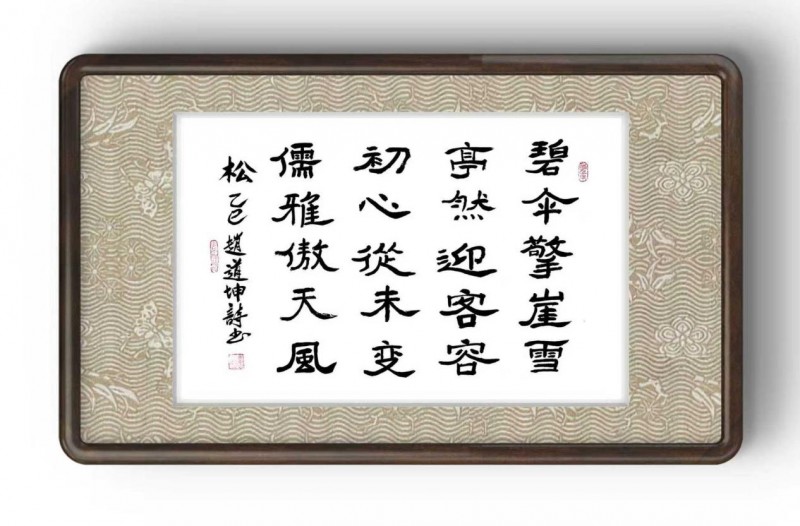 碧伞擎崖雪
亭然迎客容
初心從未变
儒雅傲天風
松 乙巳 趙道坤詩书